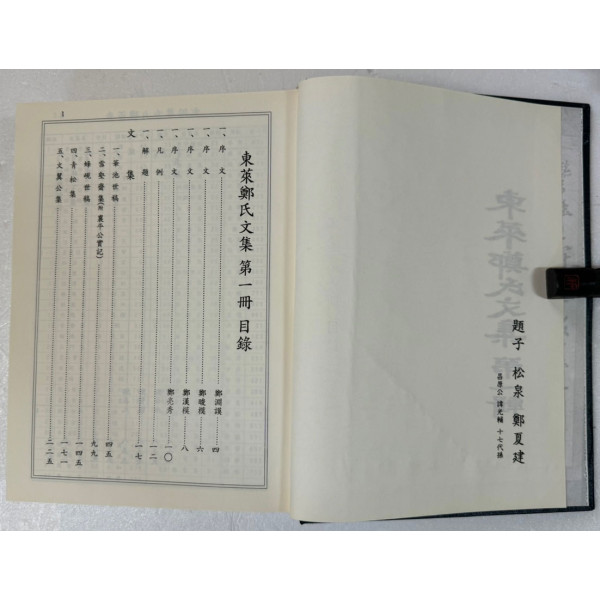 題字 松泉 鄭夏建
昌原公 諱光輔 十七代孫
1
東萊鄭氏文集 第一冊 目錄
一、序文 鄭淵謨 四
一、序文 鄭暾模 六
一、序文 鄭漢模 八
一、序文 鄭亮秀 一〇
一、凡例 一二
一、解題 一七
文集
一、華池世稿 四五
二、雪壑齋集(附 襄平公實記) 九九
三、蜂硯世稿 一四五
四、青松集 一七一
五、文翼公集 二二五